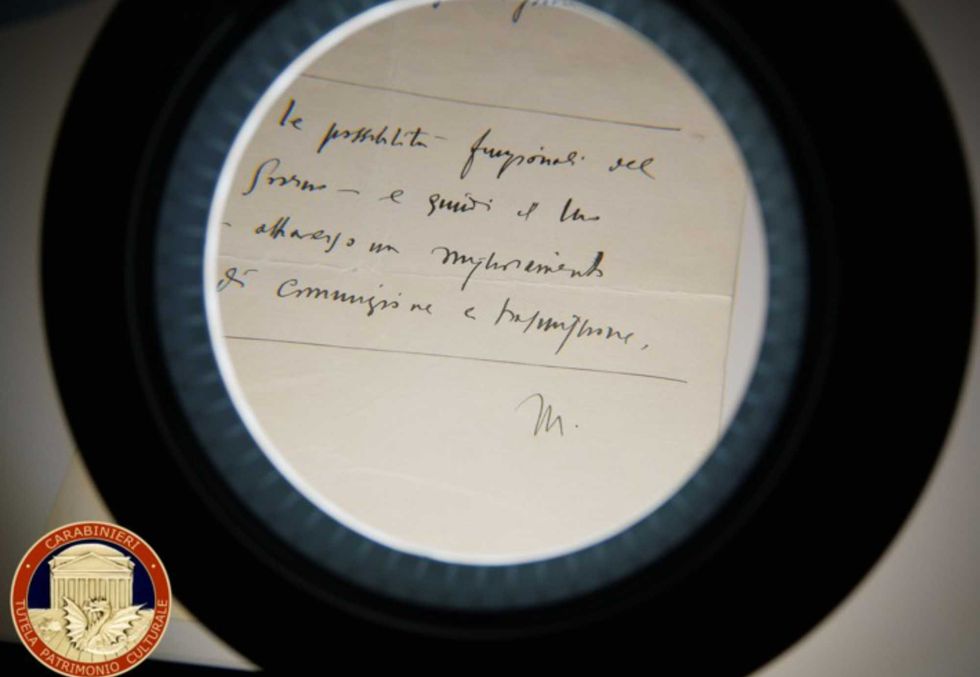 le possibilità funzionali del
— e quindi il
- attraverso un miglioramento
di e trasmissione.
M.
CARABINIERI
TUTELA PATRIMONIO CULTURALE